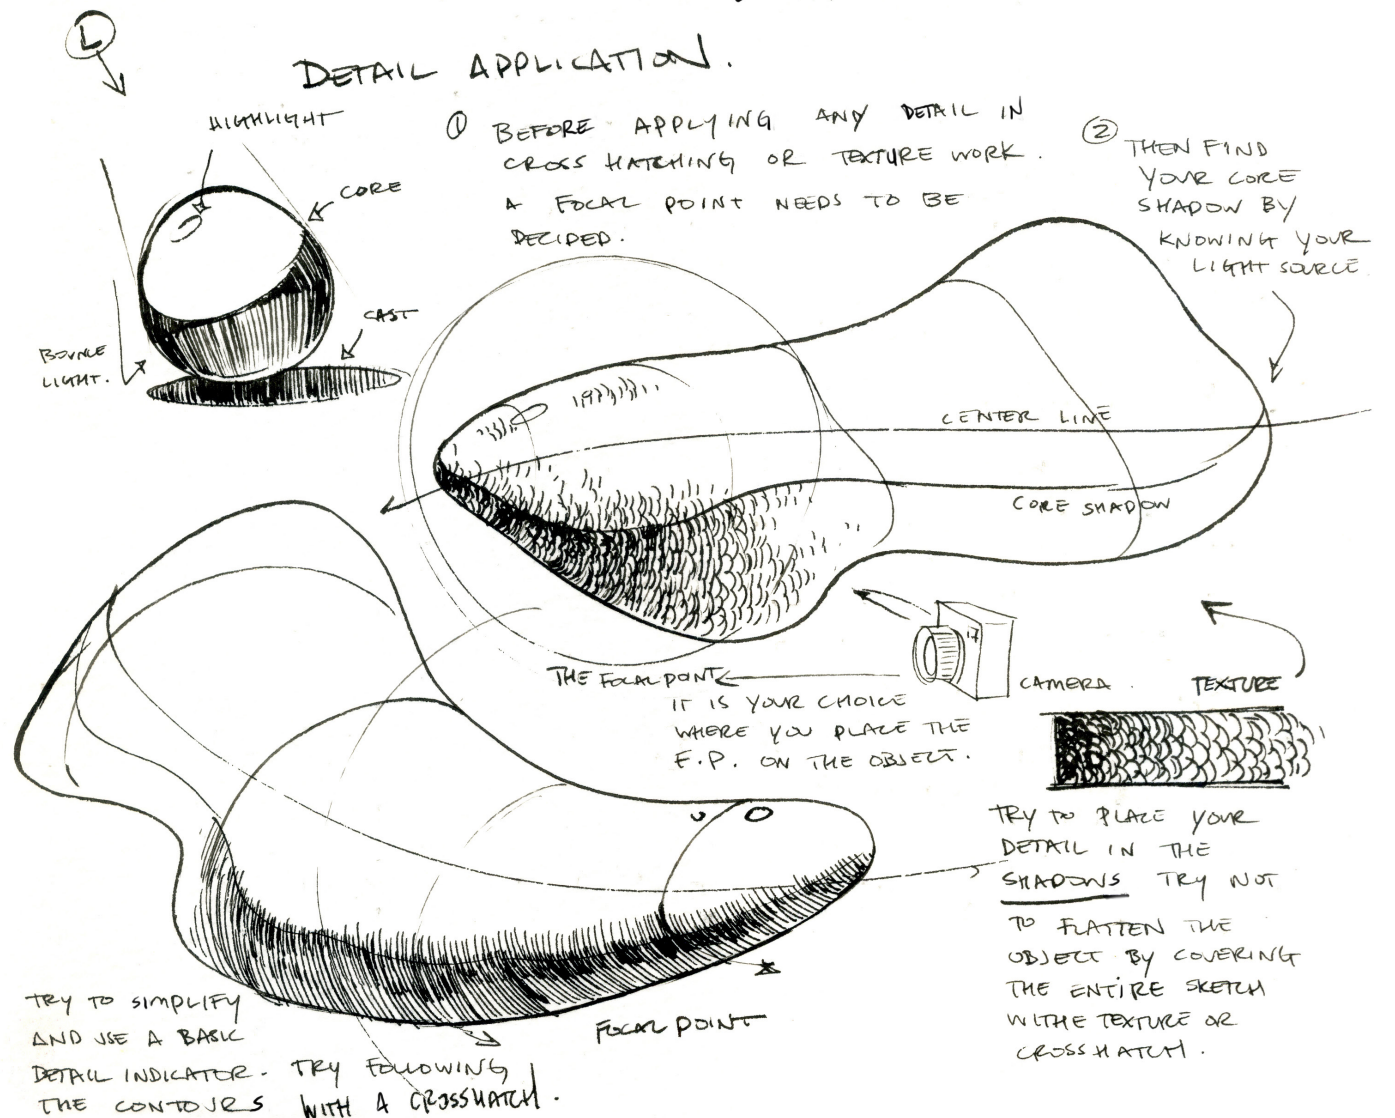 L
DETAIL APPLICATION.
HIGHLIGHT
CORE
CAST
BOUNCE
LIGHT.
① BEFORE APPLYING ANY DETAIL IN
CROSS HATCHING OR TEXTURE WORK.
A FOCAL POINT NEEDS TO BE
DECIDED.
② THEN FIND
YOUR CORE
SHADOW BY
KNOWING YOUR
LIGHT SOURCE
CENTER LINE
CORE SHADOW
THE FOCAL POINT
IT IS YOUR CHOICE
WHERE YOU PLACE THE
F.P. ON THE OBJECT.
CAMERA.
TEXTURE
TRY TO PLACE YOUR
DETAIL IN THE
SHADOWS TRY NOT
TO FLATTEN THE
OBJECT BY COVERING
THE ENTIRE SKETCH
WITHE TEXTURE OR
CROSSHATCH.
FOCAL POINT
TRY TO SIMPLIFY
AND USE A BASIC
DETAIL INDICATOR. TRY FOLLOWING
THE CONTOURS WITH A CROSSHATCH.